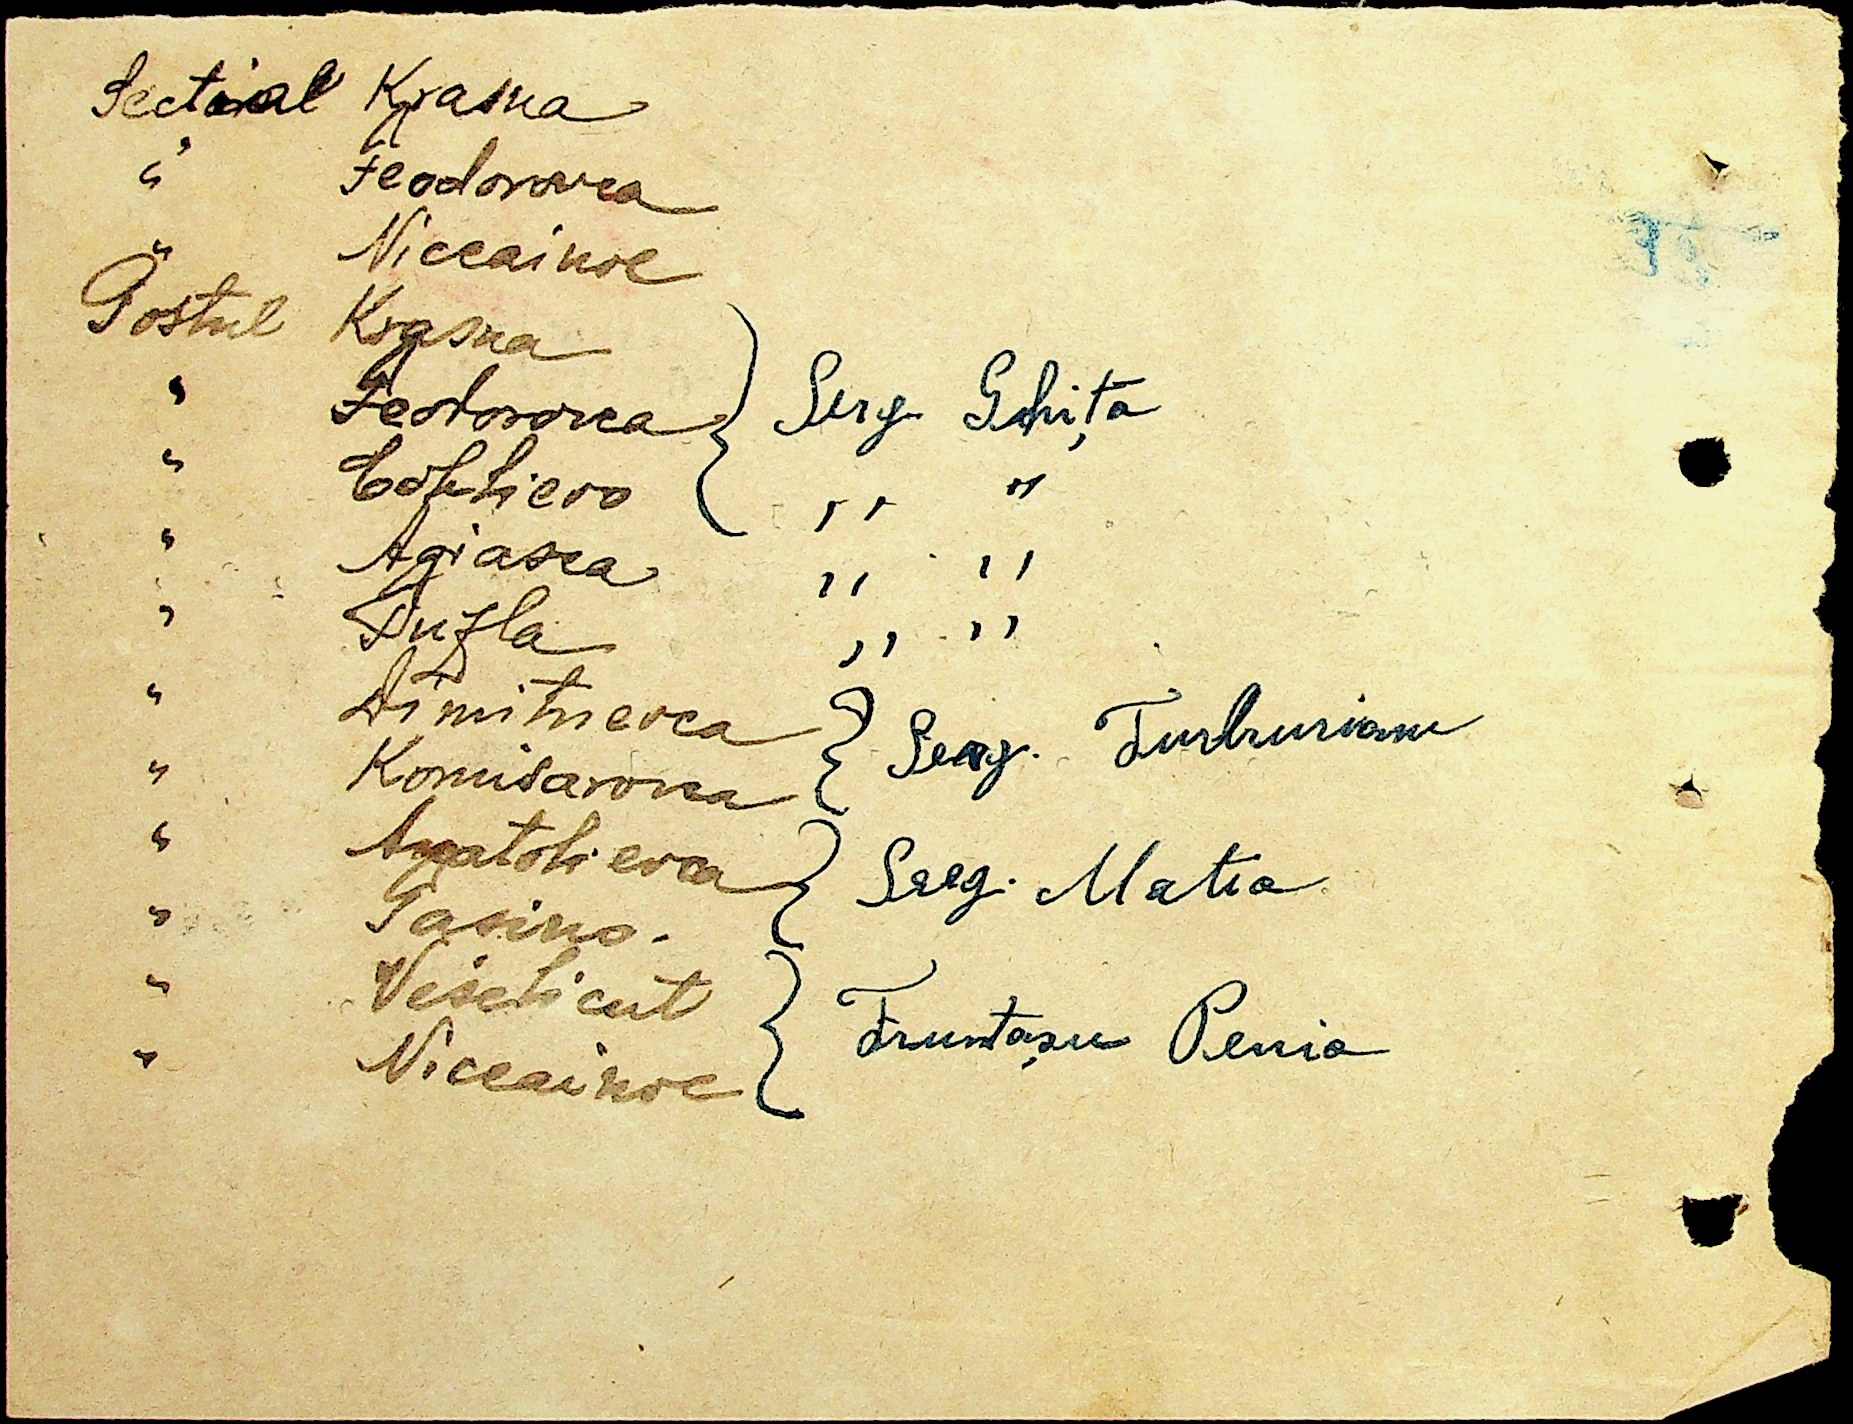 Sectorul Krasna
" Feodorovca
" Niceainoe
Postul Krasna
" Feodorovca } Serg. Ghița
" Cofliero ,, "
" Agiasca ,, ,,
" Tuzla ,, ,,
" Dimitrievca } Serg. Turburianu
" Komisarovca
" Anatolievca } Serg. Matia
" Pasino.
" Veselicut } Fruntașu Penia
" Niceainoe